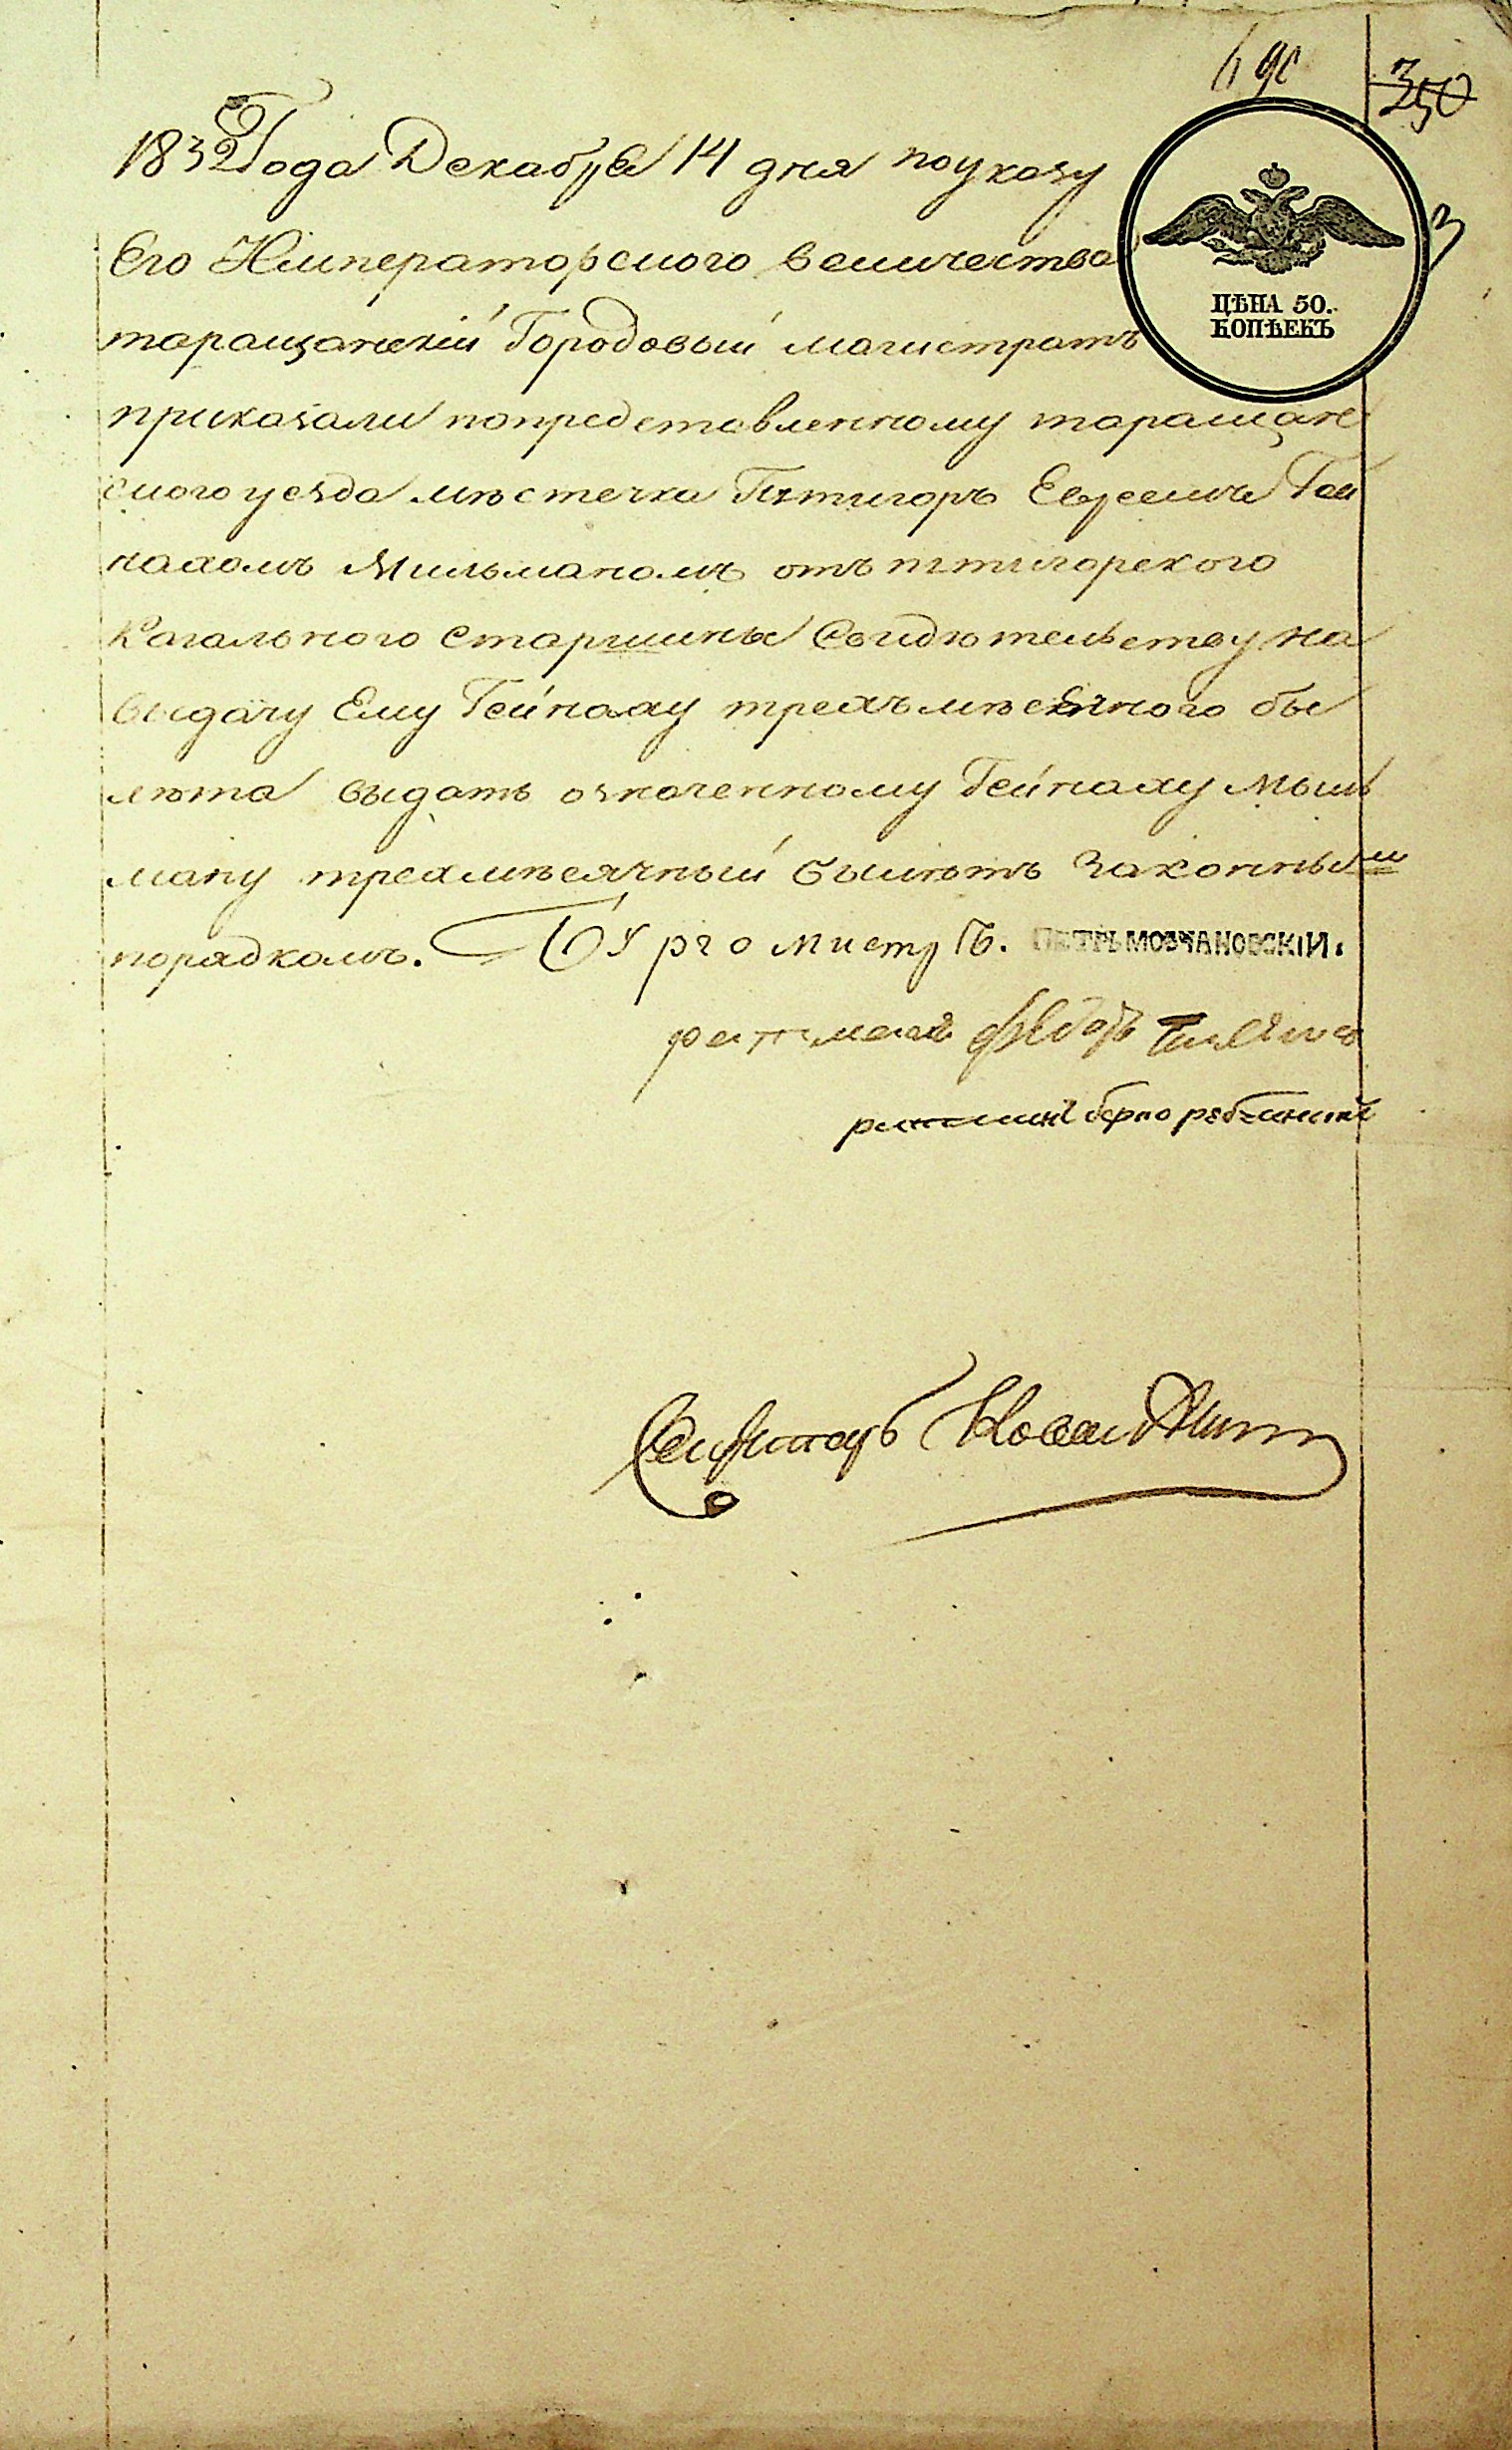 350
3
ЦѢНА 50.
КОПѢЕКЪ
1832 Года Декабря 14 дня по указу
Его Императорского величества
таращанскій Городовый магистратъ
приказали попредставленному таращанс
кого уезда мѣстечка Пятигоръ Евреемъ Гей
нахомъ Мильманомъ отъ пятигорского
Кагального Старшины Свидѣтельству на
выдачу Ему Гейнаху трехъмѣсячного бы
лѣта выдать означенному Гейнаху Мыль
ману трехмѣсячный былѣтъ Законным
порядкомъ. Бургомистръ. ПЕТРЪ МОВЧАНОВСКІЙ.
ратманъ Ѳедоръ
ратманъ берко
Секретарь